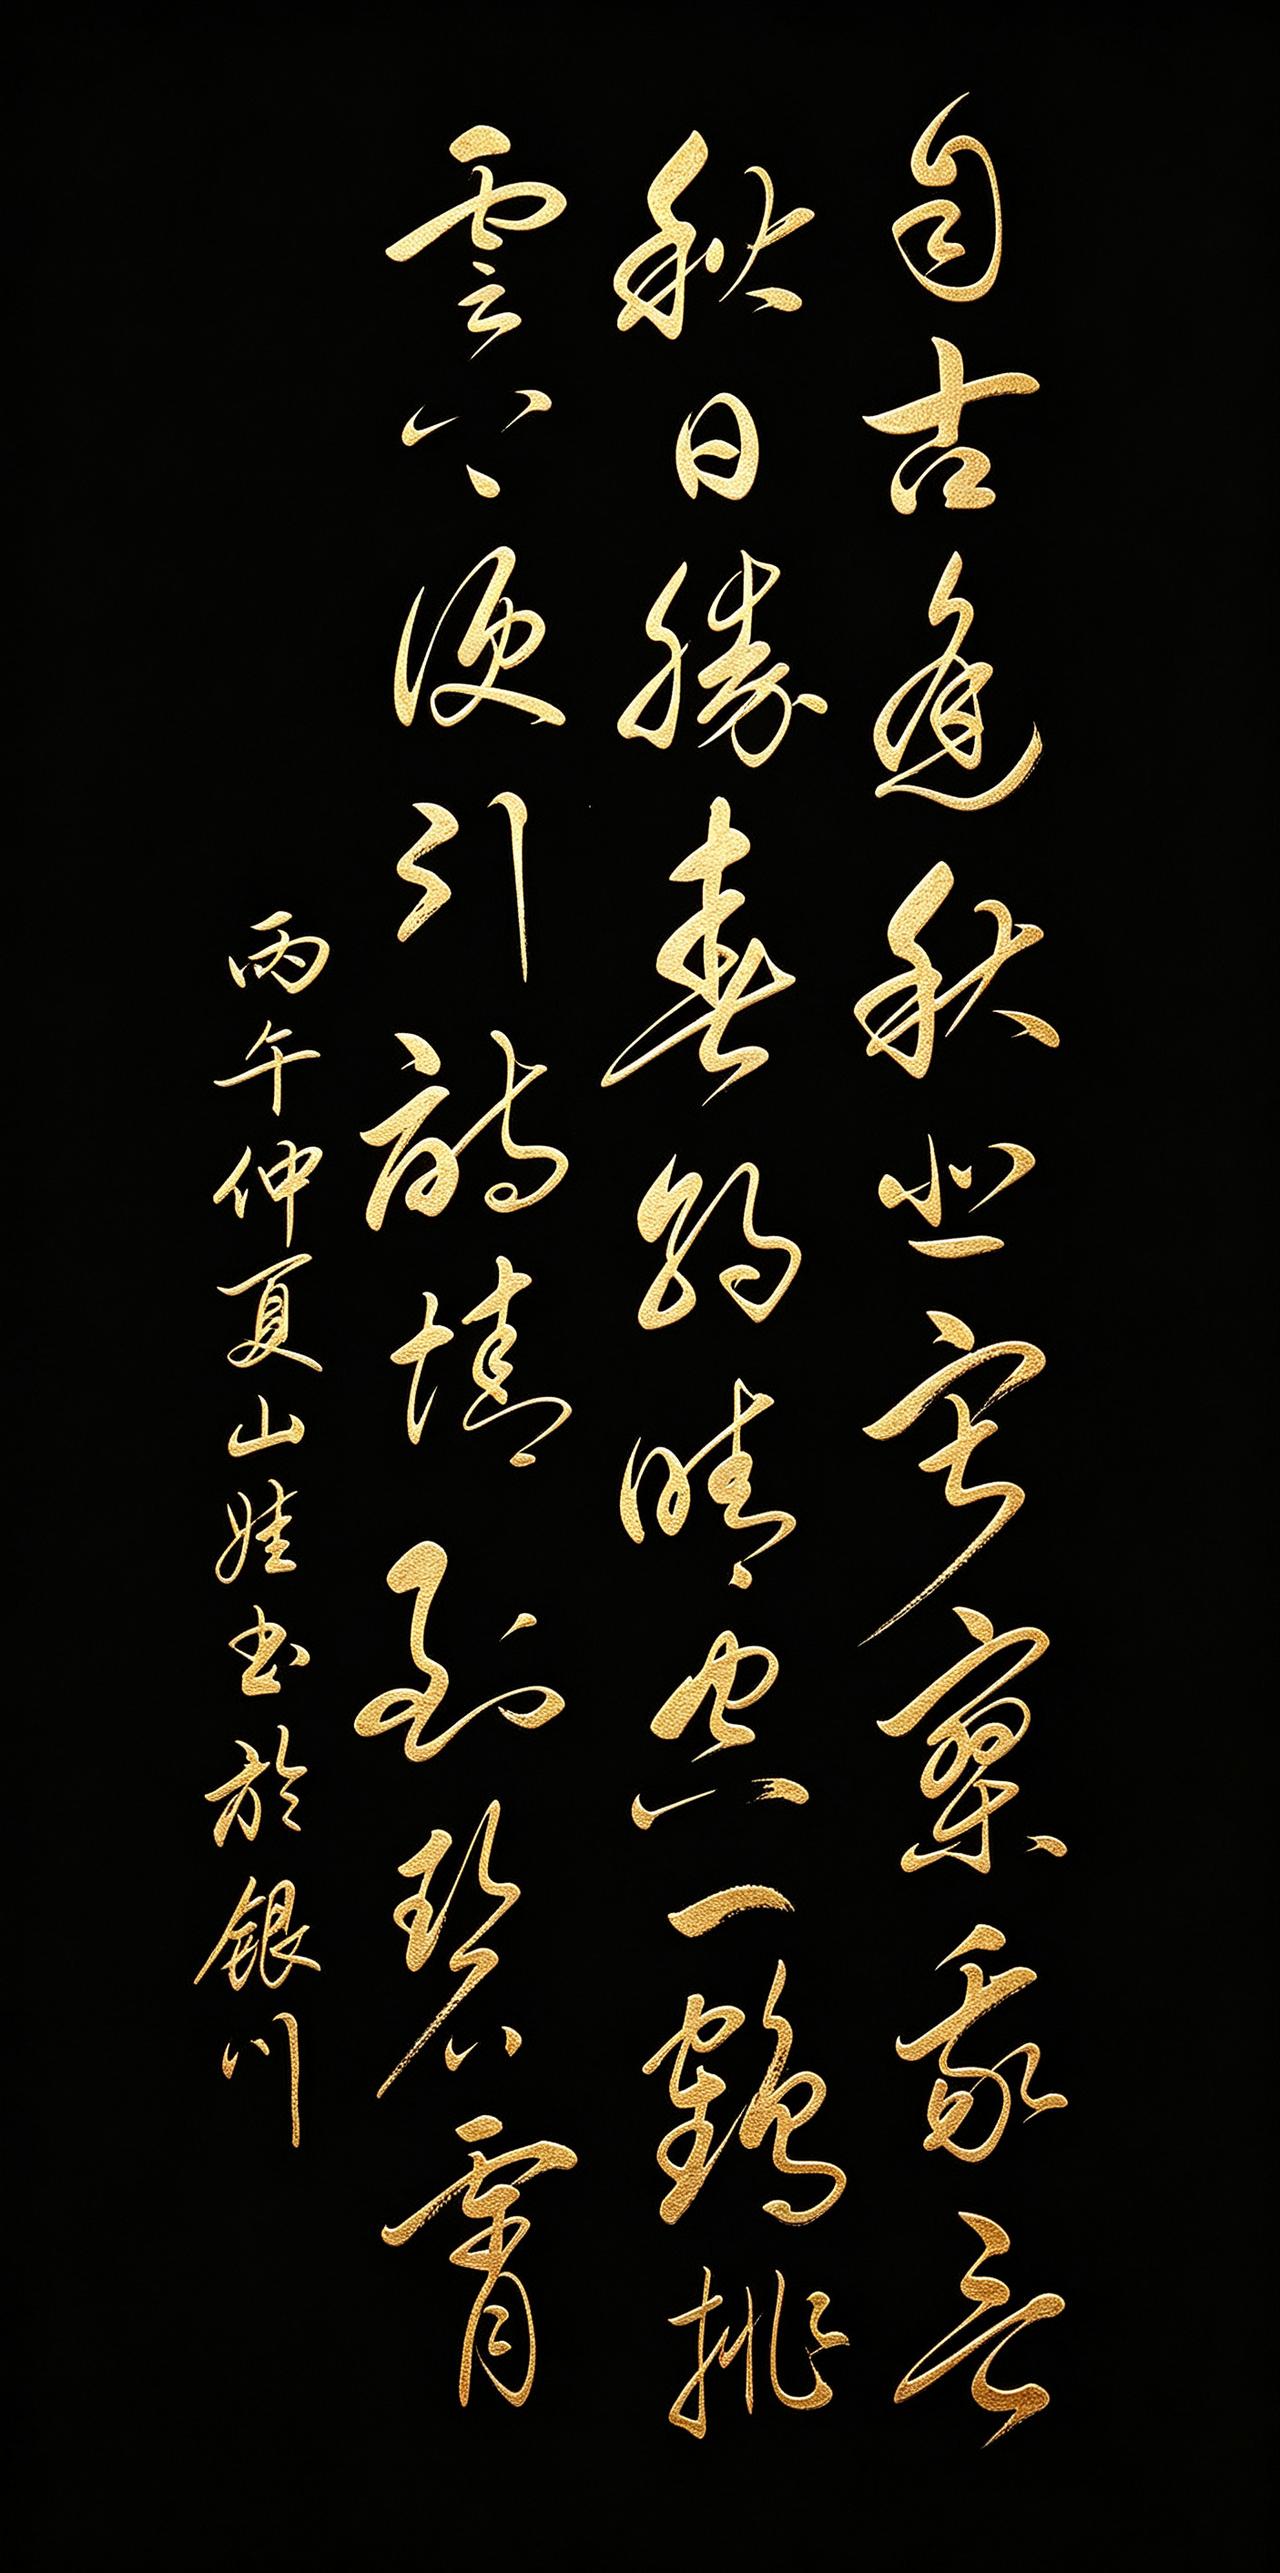 自古逢秋悲寂寥我言
秋日勝春朝晴空一鶴排
雲上便引詩情到碧霄
丙午仲夏山娃书於銀川